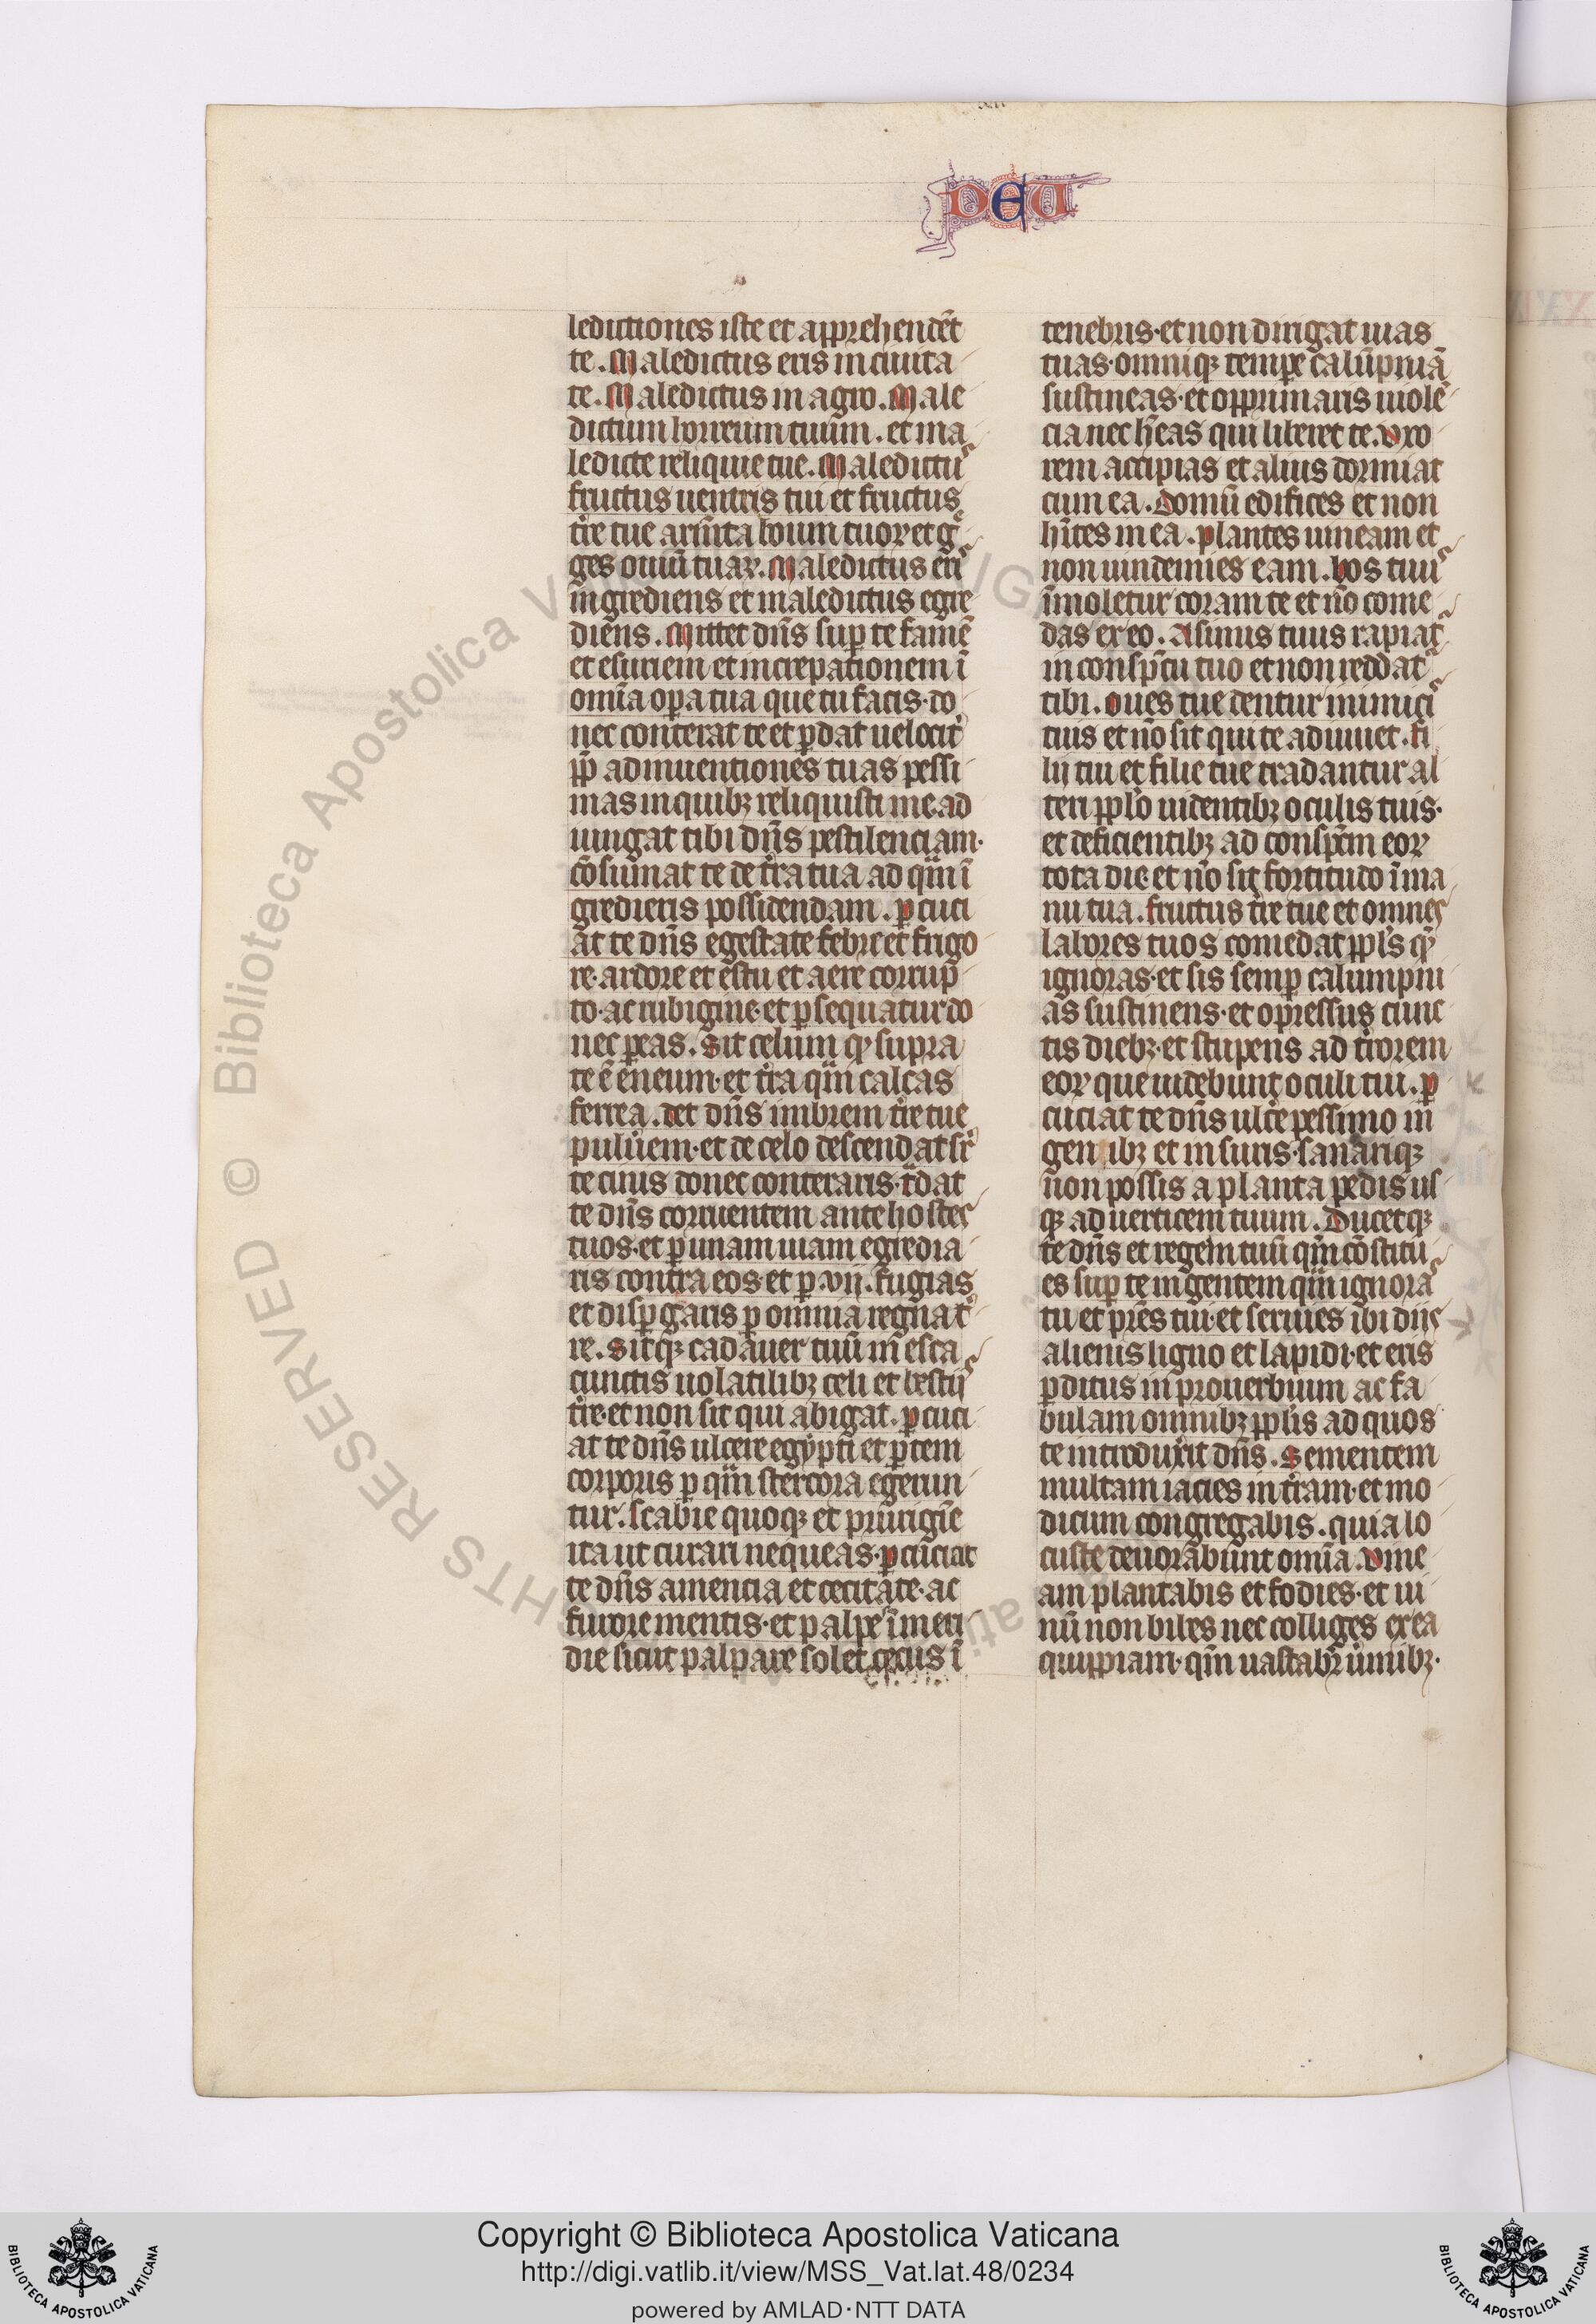 DEU
ledictiones iste et apprehendēt
te. Maledictus eris in ciuita
te. Maledictus in agro. Male
dictum horreum tuum. et ma
ledicte reliquie tue. Maledictus
fructus uentris tui et fructus
tr̄e tue arm̄ta boum tuoꝝ et g̃
ges ouiū tuaꝝ. Maledictus eris
ingrediens et maledictus egre
diens. Mittet dn̄s suꝑ te famē
et esuriem et increpationem ī
om̄ia oꝑa tua que tu facis. do
nec conterat te et ꝑdat uelocit̾
ꝓp̄ adinuentiones tuas pessi
mas in quibꝫ reliquisti me. ad
iungat tibi dn̄s pestilenciam.
cōsumat te de tr̄a tua ad qm̄ ī
gredieris possidendam. ꝑcuci
at te dn̄s egestate febre et frigo
re. ardore et estu et aere corrup
to. ac rubigine. et ꝑsequatur do
nec ꝑeas. Sit celum qd̾ supra
te ē eneum. et tr̄a qm̄ calcas
ferrea. det dn̄s imbrem tr̄e tue
puluēm. et de celo descendat sr̄
te cinis donec conteraris. tͣdat
te dn̄s corruentem ante hostes
tuos. et ꝑ unam uiam egredia
ris contra eos. et ꝑ .vii. fugias
et disꝑgaris ꝑ omnia regna t̾
re. Sitqꝫ cadauer tuū in esca
cunctis uolatilibꝫ celi et bestiis
tr̄e. et non sit qui abigat. ꝑcuci
at te dn̄s ulcere egypti et ꝑtem
corporis ꝑ qm̄ stercora egerun
tur. scabie quoqꝫ et prurigīe
ita ut curari nequeas. ꝑcuciat
te dn̄s amencia et cecitate. ac
furore mentis. et palpes ī meri
die sicut palpare solet cecus ī
tenebris. et non dirigat uias
tuas. omniqꝫ tempe calūpniā
sustineas. et opprimaris uiolē
cia nec hēas qui liberet te. vxo
rem accipias et alius dormiat
cum ea. Domū edifices et non
hītes in ea. plantes uineam et
non uindemies eam. bos tuus
īmoletur coram te et nō come
das ex eo. Asinus tuus rapiat̾
in consp̄ctu tuo et non reddat̾
tibi. oues tue dentur inimicis
tuis et nō sit qui te adiuuet. fi
lij tui et filie tue tradantur al
teri pplō uidentibꝫ oculis tuis.
et deficientibꝫ ad conspc̄m eoꝝ
tota die. et nō sit fortitudo ī ma
nu tua. fructus tr̄e tue et omnes
labores tuos comedat ppl̄s qͤ
ignoras. et sis semꝑ calumpni
as sustinens. et opressus cunc
tis diebꝫ. et stupens ad tr̄orem
eoꝝ que uidebunt oculi tui. ꝑ
cuciat te dn̄s ulc̄e pessimo in
genibꝫ et in suris. sanariqꝫ
non possis a planta pedis us
qꝫ ad uerticem tuum. Ducetqꝫ
te dn̄s et regem tuū qm̄ cōstitu
es suꝑ te in gentem qm̄ ignoras
tu et pr̄es tui. et seruies ibi diis
alienis ligno et lapidi. et eris
ꝑditus in prouerbium ac fa
bulam omnibꝫ ppl̄is ad quos
te introduxit dn̄s. Sementem
multam iacies in tr̄am. et mo
dicum congregabis. quia lo
custe deuorabunt om̄ia. vine
am plantabis et fodies. et ui
nū non bibes nec colliges ex ea
quippiam. qm̄ uastabr̄ uīnibꝫ.
Copyright © Biblioteca Apostolica Vaticana
http://digi.vatlib.it/view/MSS_Vat.lat.48/0234
powered by AMLAD·NTT DATA